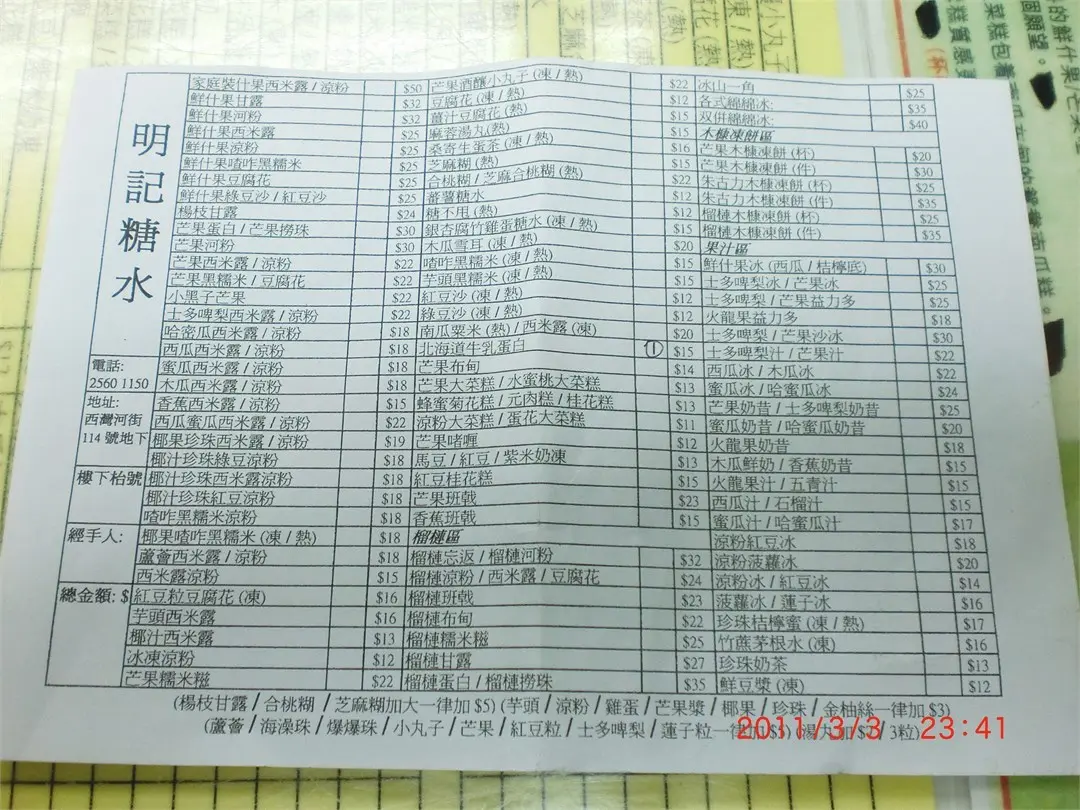 明記糖水
電話:
2560 1150
地址:
西灣河街
114 號地下
樓下枱號
經手人:
總金額: $
家庭裝什果西米露 / 涼粉 $50
鮮什果甘露 $32
鮮什果河粉 $32
鮮什果西米露 $25
鮮什果涼粉 $25
鮮什果喳咋黑糯米 $25
鮮什果豆腐花 $25
鮮什果綠豆沙 / 紅豆沙 $25
楊枝甘露 $24
芒果蛋白 / 芒果撈珠 $30
芒果河粉 $30
芒果西米露 / 涼粉 $22
芒果黑糯米 / 豆腐花 $22
小黑子芒果 $22
士多啤梨西米露 / 涼粉 $22
哈密瓜西米露 / 涼粉 $18
西瓜西米露 / 涼粉 $18
蜜瓜西米露 / 涼粉 $18
木瓜西米露 / 涼粉 $18
香蕉西米露 / 涼粉 $15
西瓜蜜瓜西米露 / 涼粉 $22
椰果珍珠西米露 / 涼粉 $19
椰汁珍珠綠豆涼粉 $18
椰汁珍珠西米露涼粉 $18
椰汁珍珠紅豆涼粉 $18
喳咋黑糯米涼粉 $18
椰果喳咋黑糯米 (凍 / 熱) $18
蘆薈西米露 / 涼粉
西米露涼粉 $15
紅豆粒豆腐花 (凍) $16
芋頭西米露 $16
椰汁西米露 $13
冰凍涼粉 $12
芒果糯米糍 $22
芒果酒釀小丸子 (凍 / 熱) $22
豆腐花 (凍 / 熱) $12
薑汁豆腐花 (熱) $15
麻蓉湯丸(熱) $15
桑寄生蛋茶 (凍 / 熱) $16
芝麻糊 (熱) $15
合桃糊 / 芝麻合桃糊 (熱) $22
蕃薯糖水 $12
糖不甩 (熱) $12
銀杏腐竹雞蛋糖水 (凍 / 熱) $15
木瓜雪耳 (凍 / 熱) $20
喳咋黑糯米 (凍 / 熱) $15
芋頭黑糯米 (凍 / 熱) $15
紅豆沙 (凍 / 熱) $12
綠豆沙 (凍 / 熱) $12
南瓜粟米 (熱) / 西米露 (凍) $20
北海道牛乳蛋白 ① $15
芒果布甸 $14
芒果大菜糕 / 水蜜桃大菜糕 $13
蜂蜜菊花糕 / 元肉糕 / 桂花糕 $13
涼粉大菜糕 / 蛋花大菜糕 $11
芒果啫喱 $12
馬豆 / 紅豆 / 紫米奶凍 $13
紅豆桂花糕
芒果班戟 $23
香蕉班戟 $15
榴槤區
榴槤忘返 / 榴槤河粉 $32
榴槤涼粉 / 西米露 / 豆腐花 $24
榴槤班戟 $23
榴槤布甸 $22
榴槤糯米糍 $25
榴槤甘露 $27
榴槤蛋白 / 榴槤撈珠 $35
冰山一角 $25
各式綿綿冰: $35
双併綿綿冰: $40
木糠凍餅區
芒果木糠凍餅 (杯) $20
芒果木糠凍餅 (件) $30
朱古力木糠凍餅 (杯) $25
朱古力木糠凍餅 (件) $35
榴槤木糠凍餅 (杯) $25
榴槤木糠凍餅 (件) $35
果汁區
鮮什果冰 (西瓜 / 桔檸底) $30
士多啤梨冰 / 芒果冰 $25
士多啤梨 / 芒果益力多 $25
火龍果益力多 $18
士多啤梨 / 芒果沙冰 $30
士多啤梨汁 / 芒果汁 $22
西瓜冰 / 木瓜冰 $22
蜜瓜冰 / 哈蜜瓜冰 $24
芒果奶昔 / 士多啤梨奶昔 $25
蜜瓜奶昔 / 哈蜜瓜奶昔 $20
火龍果奶昔 $18
木瓜鮮奶 / 香蕉奶昔 $15
火龍果汁 / 五青汁 $15
西瓜汁 / 石榴汁 $15
蜜瓜汁 / 哈蜜瓜汁 $17
涼粉紅豆冰 $18
涼粉菠蘿冰 $20
涼粉冰 / 紅豆冰 $14
菠蘿冰 / 蓮子冰 $16
珍珠桔檸蜜 (凍 / 熱) $17
竹蔗茅根水 (凍) $16
珍珠奶茶 $13
鮮豆漿 (凍) $12
(楊枝甘露 / 合桃糊 / 芝麻糊加大一律加 $5) (芋頭 / 涼粉 / 雞蛋 / 芒果漿 / 椰果 / 珍珠 / 金柚絲一律加 $3)
(蘆薈 / 海澡珠 / 爆爆珠 / 小丸子 / 芒果 / 紅豆粒 / 士多啤梨 / 蓮子粒一律加 $5) (湯丸加 3粒)
2011/3/3 23:41